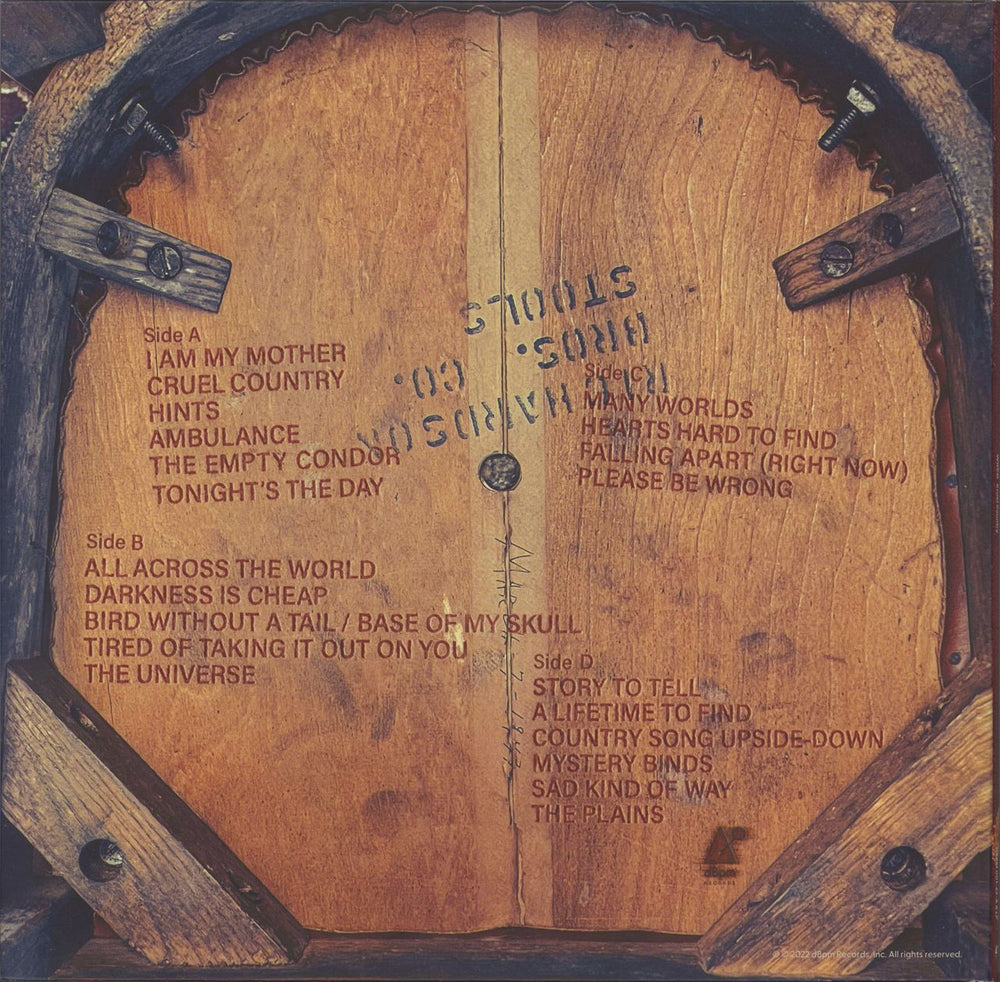 Side A
I AM MY MOTHER
CRUEL COUNTRY
HINTS
AMBULANCE
THE EMPTY CONDOR
TONIGHT'S THE DAY
Side B
ALL ACROSS THE WORLD
DARKNESS IS CHEAP
BIRD WITHOUT A TAIL / BASE OF MY SKULL
TIRED OF TAKING IT OUT ON YOU
THE UNIVERSE
RICHARDSON
BROS. CO.
STOOLS
Side C
MANY WORLDS
HEARTS HARD TO FIND
FALLING APART (RIGHT NOW)
PLEASE BE WRONG
Side D
STORY TO TELL
A LIFETIME TO FIND
COUNTRY SONG UPSIDE-DOWN
MYSTERY BINDS
SAD KIND OF WAY
THE PLAINS
dBpm
RECORDS
© 2022 dBpm Records, Inc. All rights reserved.